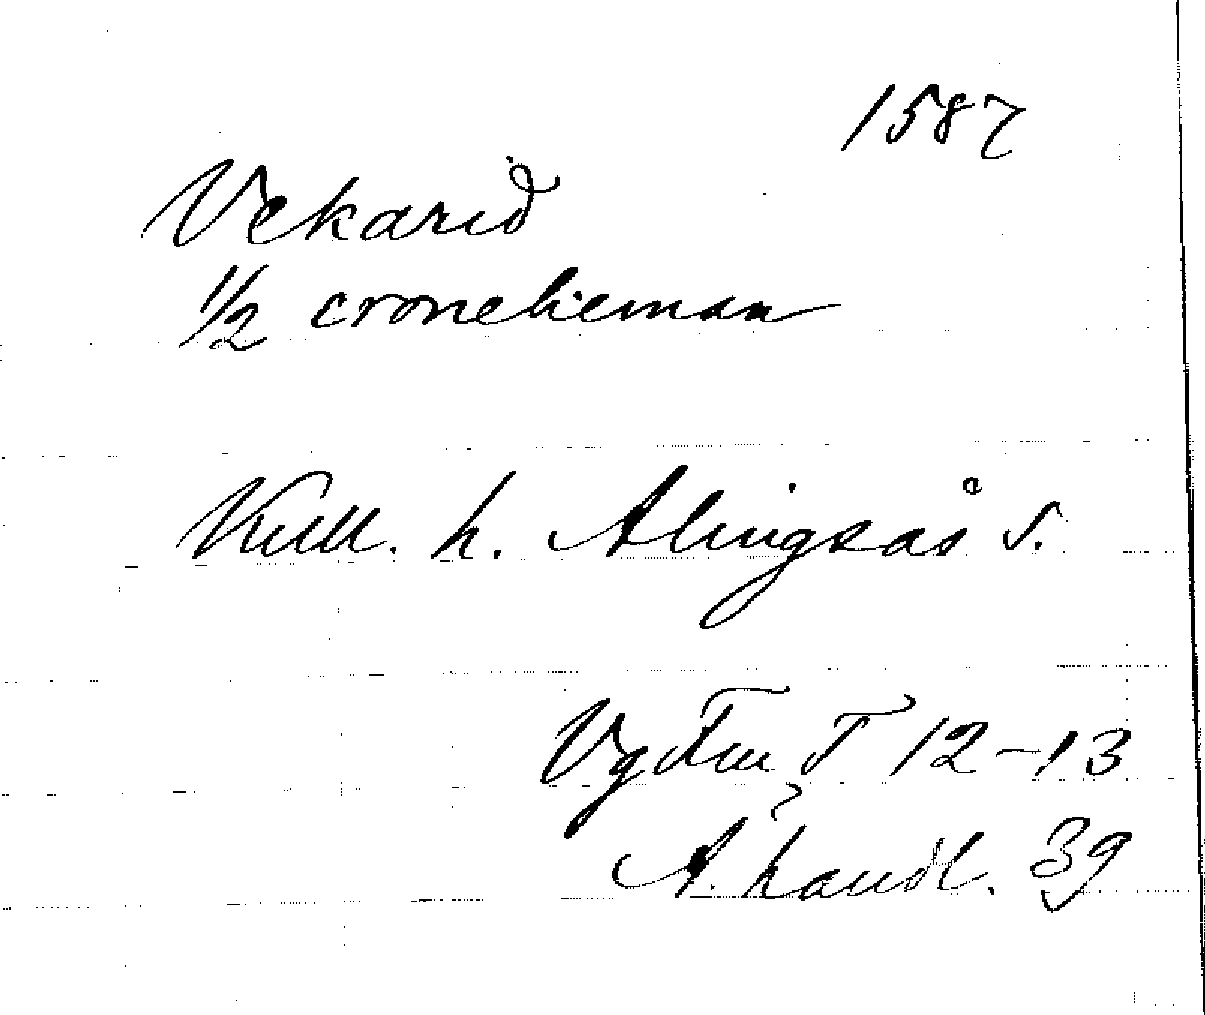 1587
Vekarid
1/2 cronehieman
Kull. h. Alingsås s.
Vg Fm T 12-13
A. handl. 39